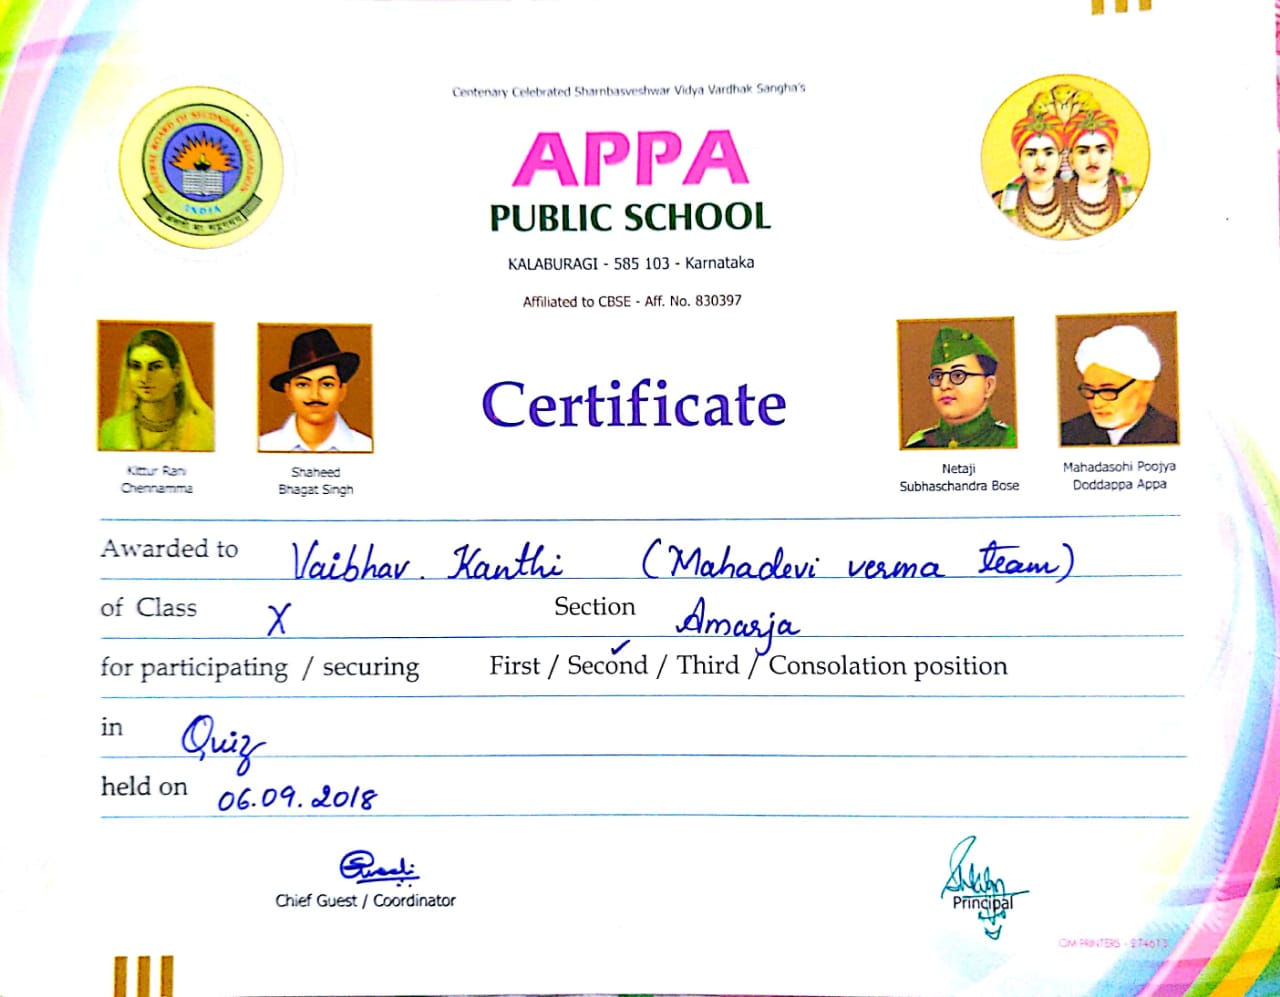 Centenary Celebrated Sharnbasveshwar Vidya Vardhak Sangha's
CENTRAL BOARD OF SECONDARY EDUCATION
INDIA
असतो मा सद्गमय
APPA
PUBLIC SCHOOL
KALABURAGI - 585 103 - Karnataka
Affiliated to CBSE - Aff. No. 830397
Certificate
Kittur Rani
Chennamma
Shaheed
Bhagat Singh
Netaji
Subhaschandra Bose
Mahadasohi Poojya
Doddappa Appa
Awarded to Vaibhav. Kanthi (Mahadevi verma team)
of Class X Section Amarja
for participating / securing First / Second / Third / Consolation position
in Quiz
held on 06.09.2018
Chief Guest / Coordinator
Principal
OM PRINTERS - 274613